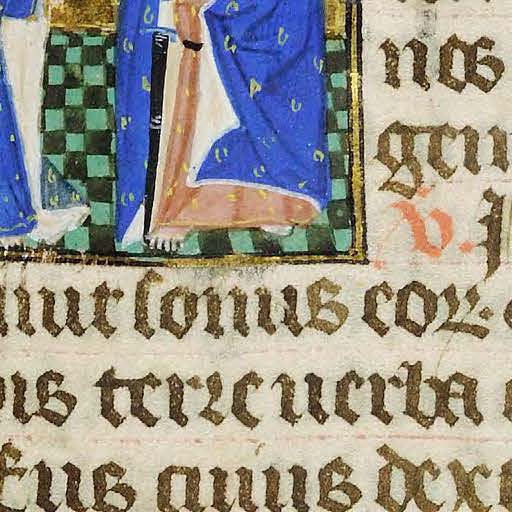 nos
gen
V. I
iuit sonus eorum
is terre uerba
eius cuius dext